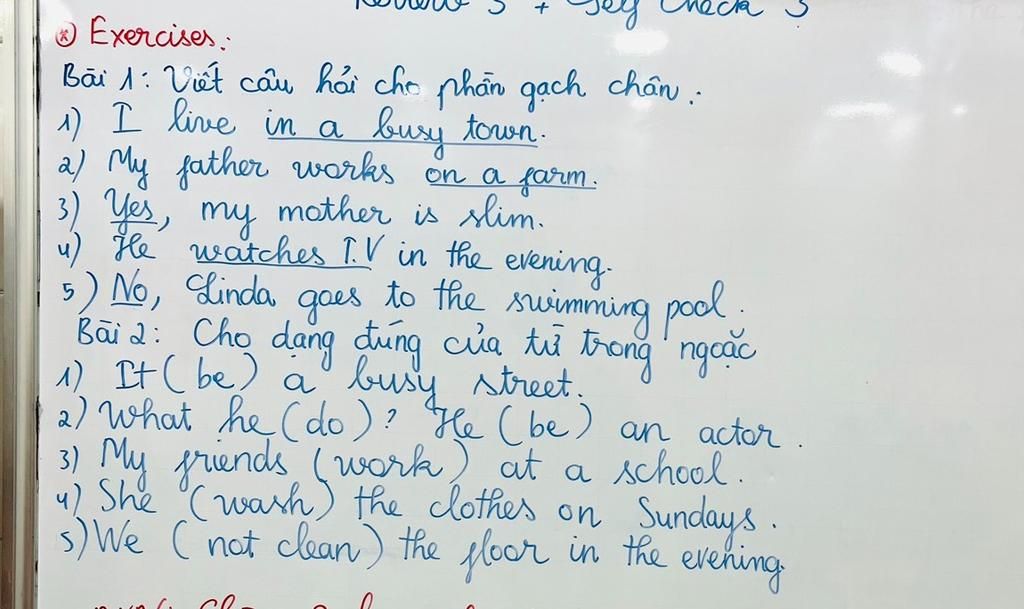 Review 3 + Self Check 3
* Exercises:
Bài 1: Viết câu hỏi cho phần gạch chân:
1) I live in a busy town.
2) My father works on a farm.
3) Yes, my mother is slim.
4) He watches T.V in the evening.
5) No, Linda goes to the swimming pool.
Bài 2: Cho dạng đúng của từ trong ngoặc
1) It (be) a busy street.
2) What he (do)? He (be) an actor.
3) My friends (work) at a school.
4) She (wash) the clothes on Sundays.
5) We (not clean) the floor in the evening.